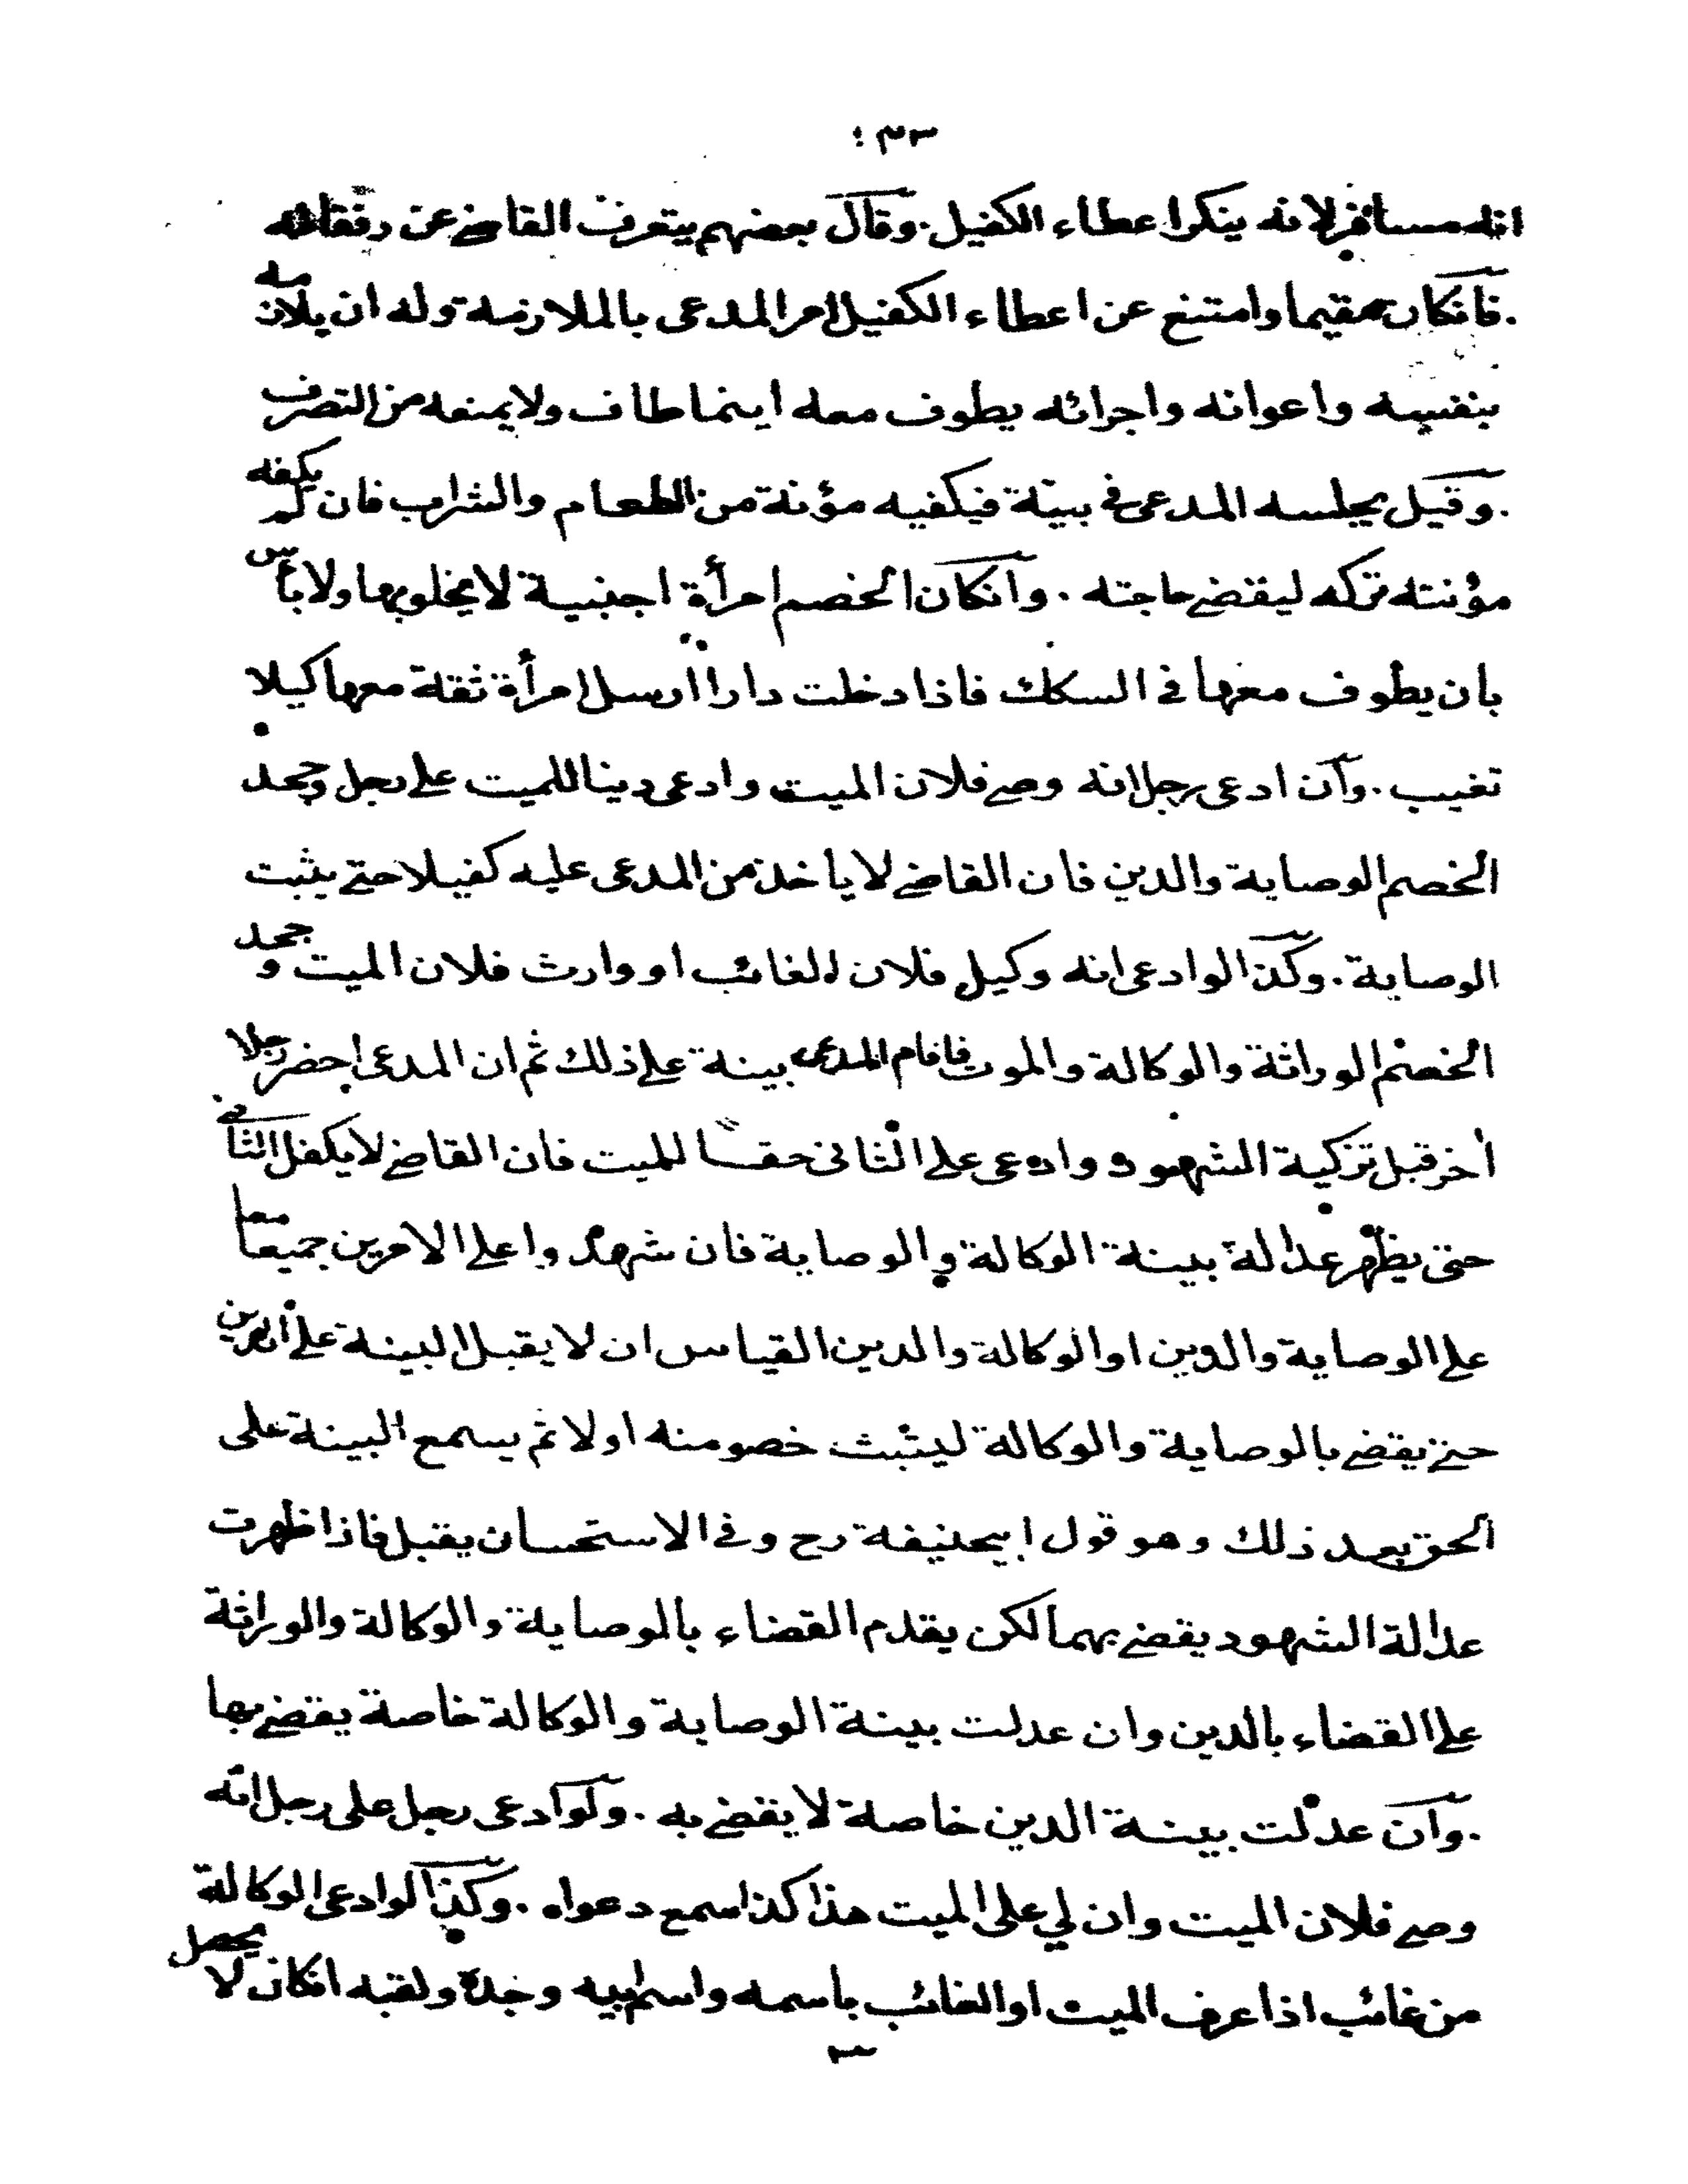 ٣٣
انه مسافر لانه ينكر اعطاء الكفيل . وقال بعضهم يتعرف القاضي عن رفقائه
. فانكان مقيما وامتنع عن اعطاء الكفيل امر المدعى بالملازمة وله ان يلازمه
بنفسه واعوانه واجرائه يطوف معه اينما طاف ولا يمنعه من التصرف
. وقيل يجلسه المدعى في بيته فيكفيه مؤنة من الطعام والشراب فان لم يكفه
مؤنته تركه ليقضي حاجته . وانكان الخصم امرأة اجنبية لا يخلو بها ولا بأس
بان يطوف معها في السكك فاذا دخلت دارا ارسل امرأة ثقة معها كيلا
تغيب . وان ادعى رجل انه وصي فلان الميت وادعى دينا للميت على رجل وجحد
الخصم الوصاية والدين فان القاضي لا ياخذ من المدعى عليه كفيلا حتى يثبت
الوصاية . وكذا لو ادعى انه وكيل فلان الغائب او وارث فلان الميت وجحد
الخصم الوراثة والوكالة والموت فاقام المدعى بينة على ذلك ثم ان المدعى احضر رجلا
اخر قبل تزكية الشهود وادعى على الثانى حقا للميت فان القاضي لا يكفل الثاني
حتى يظهر عدالة بينة الوكالة والوصاية فان شهدوا على الامرين جميعا معا
على الوصاية والدين او الوكالة والدين القياس ان لا يقبل البينة على الدين
حتى يقضي بالوصاية والوكالة ليثبت خصومته اولا ثم يسمع البينة على
الحق بعد ذلك وهو قول ابيحنيفة رح وفي الاستحسان يقبل فاذا ظهرت
عدالة الشهود يقضي بهما لكن يقدم القضاء بالوصاية والوكالة والوراثة
على القضاء بالدين وان عدلت بينة الوصاية والوكالة خاصة يقضي بها
. وان عدلت بينة الدين خاصة لا يقضي به . ولو ادعى رجل على رجل انه
وصي فلان الميت وان لي على الميت هذا كذا سمع دعواه . وكذا لو ادعى الوكالة
من غائب اذا عرف الميت او الغائب باسمه واسم ابيه وجده ولقبه انكان لا يحصل